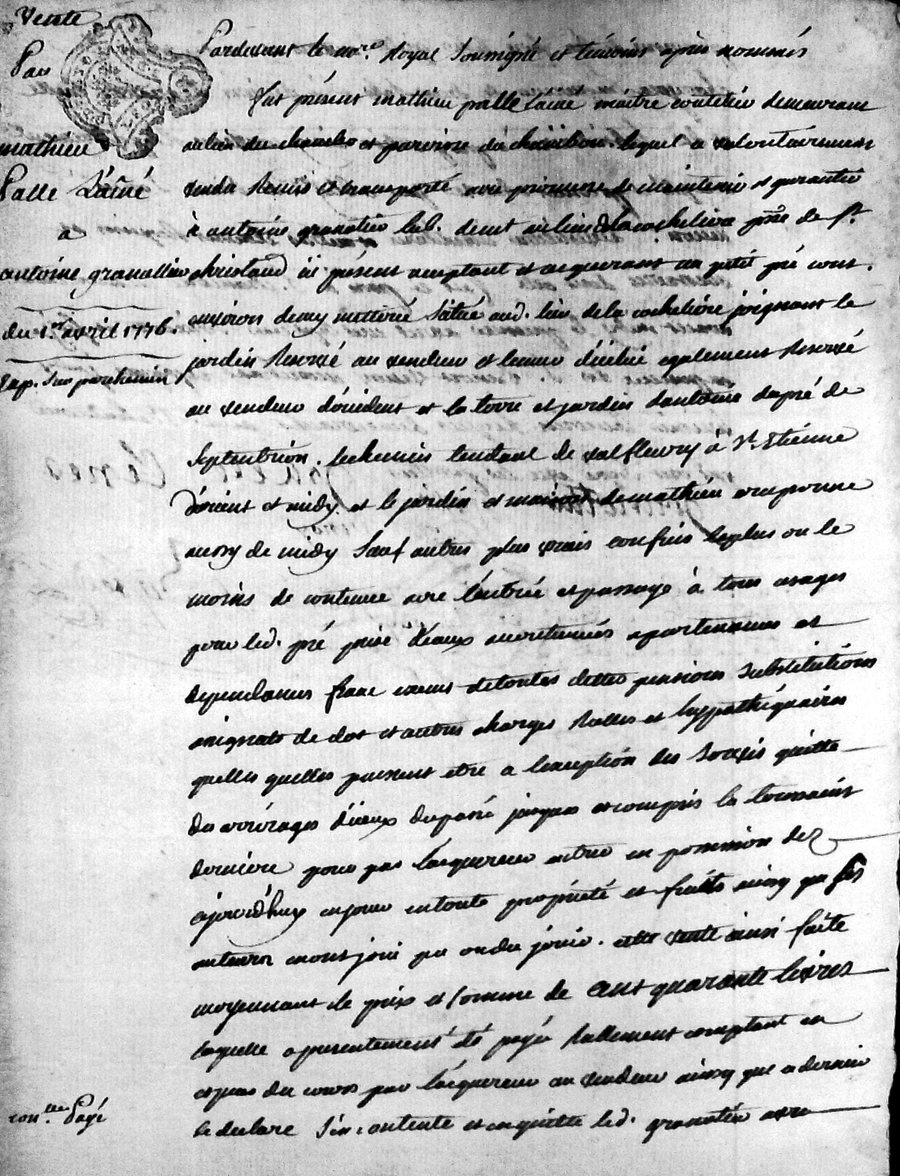 Vente
Par
mathieu
Palle L'aîné
a
antoine granottier
du 1er. avril 1776.
Exp. sur parchemin
Pardevant le nore. Royal soussigné et témoins après nommés
fut présent mathieu palle l'aîné maître coutelier demeurant
au lieu du chambo et paroisse du chambon. lequel a volontairement
vendu remis et transporté avec promesse de maintenir et garantir
à antoine granotier lab. demt au lieu de la cochelière psse de st.
christaud ici présent acceptant et acquerant un petit pré cont.
environs demy metterée situé aud. lieu de la cochelière joignant le
jardin réservé au vendeur et également réservé
au vendeur d'occident et la terre et jardin d'antoine dupré de
septentrion. le chemin tendant de valfleury à st. Etienne
d'orient et midy et le jardin et maison de mathieu
aussy de midy sauf autres plus vrais confins le plus ou le
moins de contenue avec l'entrée et passage à tous usages
pour led. pré prise d'eaux apartenances et
dependances franc de toutes dettes pensions substitutions
de dot et autres charges réelles et hyppothéquaires
quelles quelles puissent etre a l'exception des servis quitte
des arrérages d'iceux du passé jusques et compris la toussaint
dernière pour par l'acquereur entrer en possession dez
ajourd'huy en jouir en toute propriété et fruits ainsy que ses
auteurs en ont joui pu ou du jouir. cette vente ainsi faite
moyennant le prix et somme de cent quarante livres
laquelle a presentement été payé réellement comptant en
espèces du cours par l'acquereur au vendeur ainsy que ce dernier
le declare s'en contente et en quitte led. granotier avec
con.lle Payé